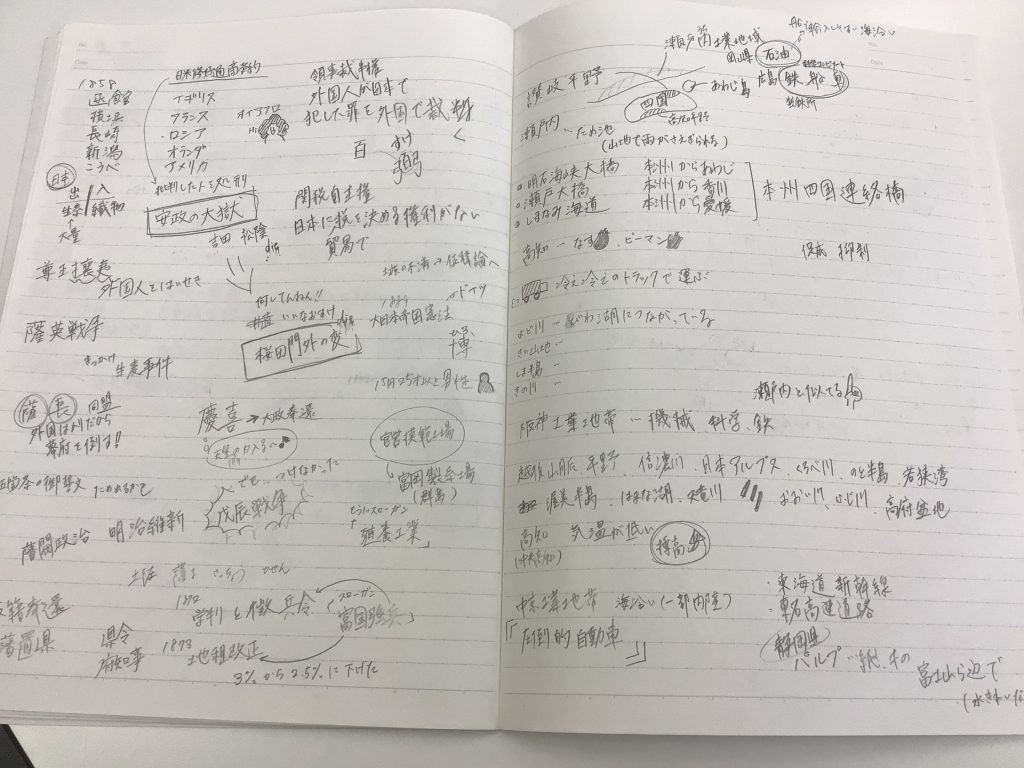 日米修好通商条約
1858
函館
横浜
長崎
新潟
こうべ
イギリス
フランス
ロシア
オランダ
アメリカ
領事裁判権
外国人が日本で
犯した罪を外国で裁
百
日本
出/入
生糸 織物
大量
批判した人を処刑
安政の大獄
吉田 松陰
関税自主権
日本に税を決める権利がない
貿易で
尊王攘夷
外国人をはいせき
何してんねん!!
井直 いいなおすけ
桜田門外の変
大日本帝国憲法
ドイツ
博
薩英戦争
きっかけ
生麦事件
15円25才以上男性
薩 長 同盟
外国はムリだから
幕府を倒す!
慶喜→大政奉還
でも…つけなかった
戊辰戦争
官営模範工場
富岡製糸工場
(群馬)
スローガン
殖産工業」
五箇条の御誓文
ため
藩閥政治
明治維新
土佐 薩ま ちょうしゅう ひぜん
1872
学制と徴兵令
スローガン
富国強兵
版籍奉還
廃藩置県
県令
府知事
1873
地租改正
3%から2.5%に下げた
瀬戸内工業地域
輸入しやすい 海沿い
岡山県
石油
広島
鉄
製鉄所
讃岐平野
四国
あわじ島
高知平野
瀬戸内…ため池
(山地で雨がさえぎられる)
明石海峡大橋 本州からあわじ
瀬戸大橋 本州から香川
しまなみ海道 本州から愛媛
本州四国連絡橋
高知…なす ピーマン
促成 抑制
冷え冷えのトラックで運ぶ
よど川…びわ湖につながっている
きい山地…
しま半島…
きの川 〃
瀬戸内と似てる
阪神工業地帯…機械 科学、鉄
越後山脈、平野、信濃川、日本アルプス くろべ川、のと半島 若狭湾
渥美半島、はまな湖、天竜川 おおい川、ふじ川、高府盆地
高知 気温が低い
(中央高知)
標高
中京工業地帯 海沿い(一部内陸)
「圧倒的自動車」
・東海道新幹線
・東名高速道路
静岡県
パルプ…紙、木の
富士山ら辺で